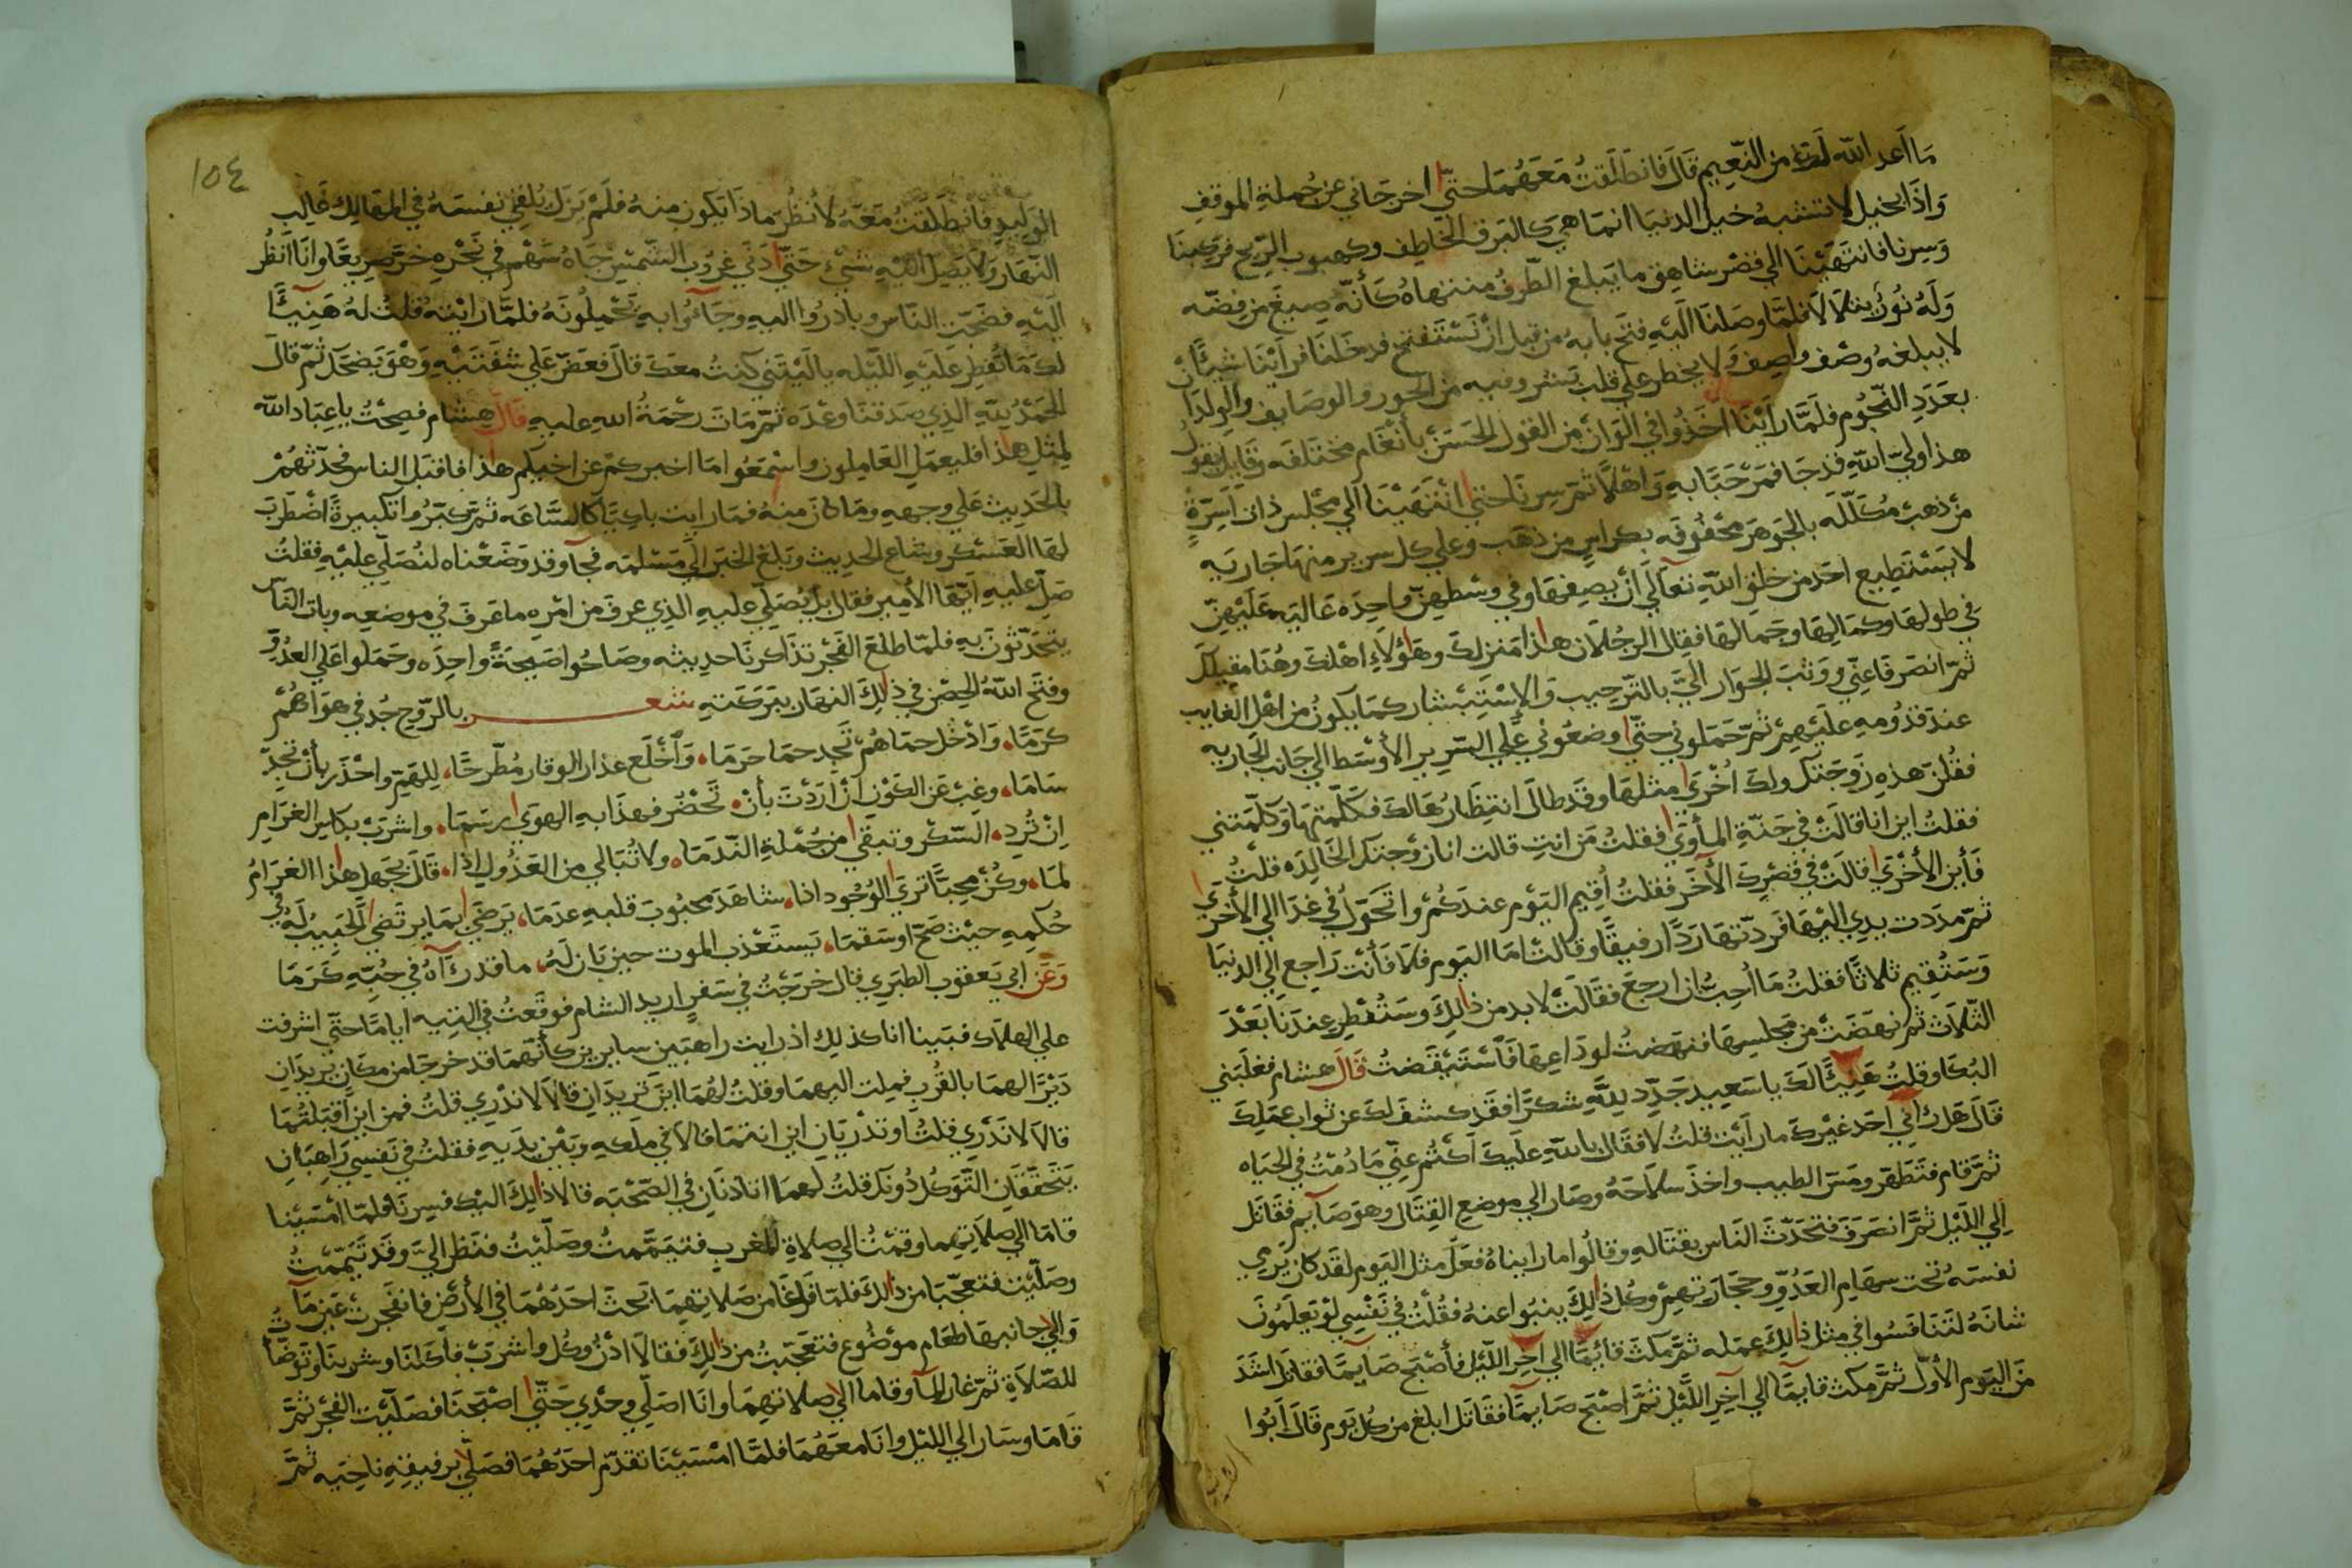 ما اعد الله لك من النعيم قال فانطلقت معهما حتى اخرجاني عن جملة الموقف
واذا بخيل لا تشبه خيل الدنيا انما هي كالبرق الخاطف وكهبوب الريح فركبنا
وسرنا فانتهينا الي قصر شاهق ما يبلغ الطرف منتهاه كأنه صيغ من فضه
وله نور يتلالا فلما وصلنا اليه فتح بابه من قبل ان نستفتح فدخلنا فراينا شيئا
لا يبلغه وصف واصف ولا يخطر علي قلب بشر وفيه من الحور والوصايف والولدان
بعدد النجوم فلما راينا اخذوا في الوان من القول الحسن بأنغام مختلفه وقايل يقول
هذا ولي الله قد جا فمرحبا به واهلا ثم سرنا حتى انتهينا الي مجلس ذات اسرة
من ذهب مكلله بالجوهر محفوفه بكراسي من ذهب وعلي كل سرير منها جاريه
لا يستطيع احد من خلق الله تعالي ان يصفها وفي وسطهن واحده عاليه عليهن
في طولها وكمالها وجمالها فقال الرجلان هذا منزلك وهؤلاء اهلك وهنا مقيلك
ثم انصرفا عني ووثب الجوار الي بالترحيب والاستبشار كما يكون من اهل الغايب
عند قدومه عليهم ثم حملوني حتى وضعوني علي السرير الأوسط الي جانب الجاريه
فقلن هذه زوجتك ولك اخرى مثلها وقد طال انتظارها لك فكلمتها وكلمتني
فقلت اين انا قالت في جنة المأوى فقلت من انت قالت انا زوجتك الخالده قلت
فأين الأخرى قالت في قصرك الآخر فقلت أقيم اليوم عندكم واتحول في غدا الي الأخرى
ثم مددت يدي اليها فردتها ردا رفيقا وقالت اما اليوم فلا فأنت راجع الي الدنيا
وستقيم ثلاثا فقلت ما أحب ان ارجع فقالت لا بد من ذلك وستفطر عندنا بعد
الثلاث ثم نهضت من مجلسها فنهضت لوداعها فاستيقضت قال هشام فغلبني
البكا وقلت هنيئا لك يا سعيد جدد لله شكرا فقد كشف لك عن ثواب عملك
قال هل راي احد غيرك ما رأيت قلت لا فقال بالله عليك اكتم عني ما دمت في الحياه
ثم قام فتطهر ومس الطيب واخذ سلاحه وصار الي موضع القتال وهو صآيم فقاتل
الي الليل ثم انصرف فتحدث الناس بقتاله وقالوا ما رايناه فعل مثل اليوم لقد كان يرمي
نفسه تحت سهام العدو وحجارتهم وكل ذلك ينبوا عنه فقلت في نفسي لو تعلمون
شانه لتنافسوا في مثل ذلك عمله ثم مكث قائما الي اخر الليل فأصبح صآيما فقاتل اشد
من اليوم الأول ثم مكث قآيما الي آخر الليل ثم اصبح صآيما فقاتل ابلغ من كل يوم قال ابوا
الوليد
١٥٤
الوليد فانطلقت معه لأنظر ماذا يكون منه فلم يزل يلقي نفسه في المهالك غالب
النهار ولا يصل اليه شيء حتى دنى غروب الشمس جاه سهم في نحره خر صريعا وانا انظر
اليه فضجت الناس وبادروا اليه وجآؤا به يحملونه فلما رايته قلت له هنيئا
لك ما تفطر عليه الليله ياليتني كنت معك قال فعض علي شفتيه وهو يضحك ثم قال
الحمد لله الذي صدقنا وعده ثم مات رحمة الله عليه قال هشام فصحت يا عباد الله
لمثل هذا فليعمل العاملون واسمعوا ما اخبركم عن اخيكم هذا فاقبل الناس فحدثتهم
بالحديث علي وجهه وما كان منه فما رايت باكيا كالساعه ثم كبروا تكبيرة اضطرب
لها العسكر وشاع الحديث وبلغ الخبر الي مسلمه فجآ وقد وضعناه لنصلي عليه فقلت
صل عليه ايها الأمير فقال بل يصلي عليه الذي عرف من امره ما عرف في موضعه وبات الناس
يتحدثون به فلما طلع الفجر تذاكرنا حديثه وصاحوا صيحة واحده وحملوا علي العدو
وفتح الله الحصن في ذلك النهار ببركته شعر بالروح جد في هواهم
كرما، وادخل حماهم تجد حما حرما، واخلع عذار الوقار مطرحا، للهم واحذر بأن تجد
ساما، وغب عن الكون ان اردت بأن، تحضر فهذا به الهوى رسما، واشرب بكاس الغرام
ان ترد، السكر وتبقى من جملة الندما، ولا تبالي من العذول اذا، قال بجهل هذا الغرام
لما، وكن محبا ترى الوجود اذا، شاهد محبوب قلبه عدما، يرضى بما يرتضى الحبيب له في
حكمه حيث صح او سقما، يستعذب الموت حين بان له، ما قدرآه في حبه كرما
وعن ابي يعقوب الطبري قال خرجت في سفر اريد الشام فوقعت في التيه اياما حتي اشرفت
علي الهلاك فبينا انا كذلك اذ رايت راهبين سايرين كأنهما قد خرجا من مكان يريدان
ديرا لهما بالقرب فملت اليهما وقلت لهما اين تريدان قالا لا ندري قلت فمن اين اقبلتما
قالا لا ندري قلت اوتدريان اين انتما قالا في ملكه وبين يديه فقلت في نفسي راهبان
يتحققان التوكل دونك قلت لهما اتأذنان في الصحبه قالا ذلك اليك فسرنا فلما امسينا
قاما الي صلاتهما وقمت الي صلاة المغرب فتيممت وصليت فنظرا الي وقد تيممت
وصليت فتعجبا من ذلك فلما فرغا من صلاتهما بحث احدهما في الأرض فانفجرت عين مآ
والي جانبها طعام موضوع فتعجبت من ذلك فقالا ادن وكل واشرب فأكلنا وشربنا وتوضأت
للصلاة ثم غار المآ وقاما الي صلاتهما وانا اصلي وحدي حتى اصبحنا فصليت الفجر ثم
قاما وسارا الي الليل وانا معهما فلما امسينا تقدم احدهما فصلى برفيقه ناحيه ثم